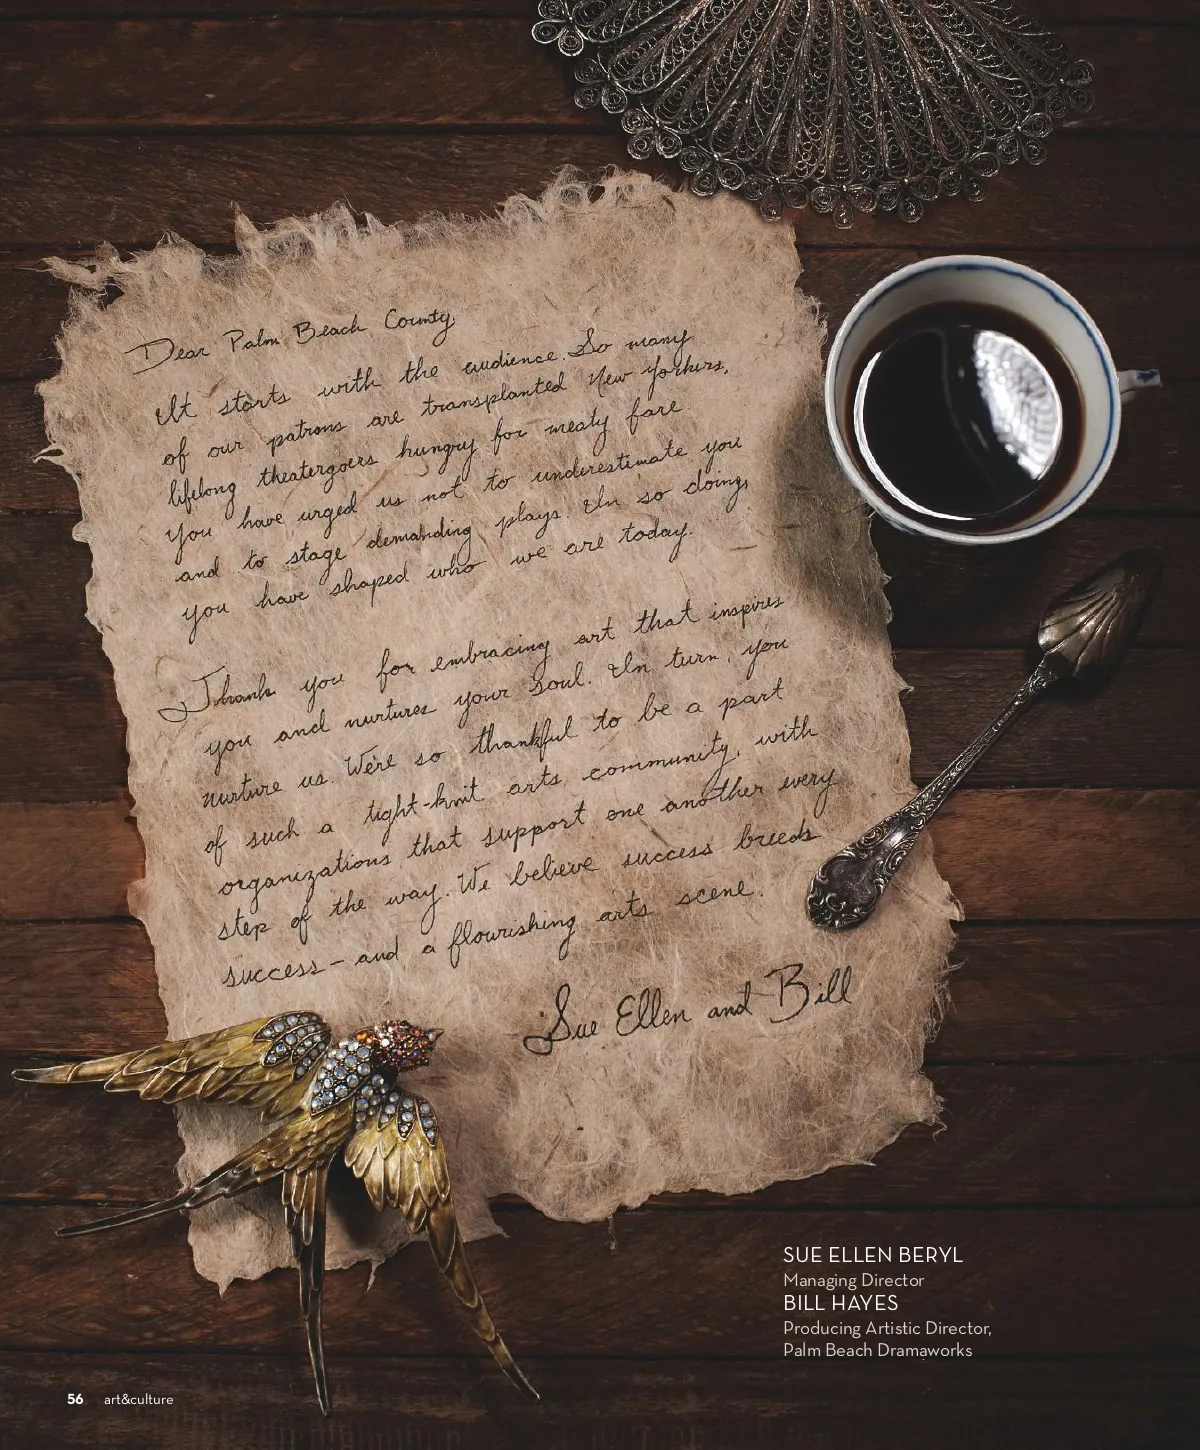 Dear Palm Beach County,
It starts with the audience. So many
of our patrons are transplanted New Yorkers,
lifelong theatergoers hungry for meaty fare.
You have urged us not to underestimate you
and to stage demanding plays. In so doing,
you have shaped who we are today.
Thank you for embracing art that inspires
you and nurtures your soul. In turn, you
nurture us. We're so thankful to be a part
of such a tight-knit arts community, with
organizations that support one another every
step of the way. We believe success breeds
success – and a flourishing arts scene.
Sue Ellen and Bill
SUE ELLEN BERYL
Managing Director
BILL HAYES
Producing Artistic Director,
Palm Beach Dramaworks
56 art&culture